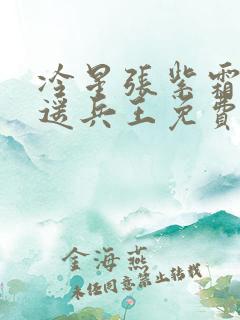 冷星張紫霜
遥兵王免費
金海燕
未经同意禁止转载